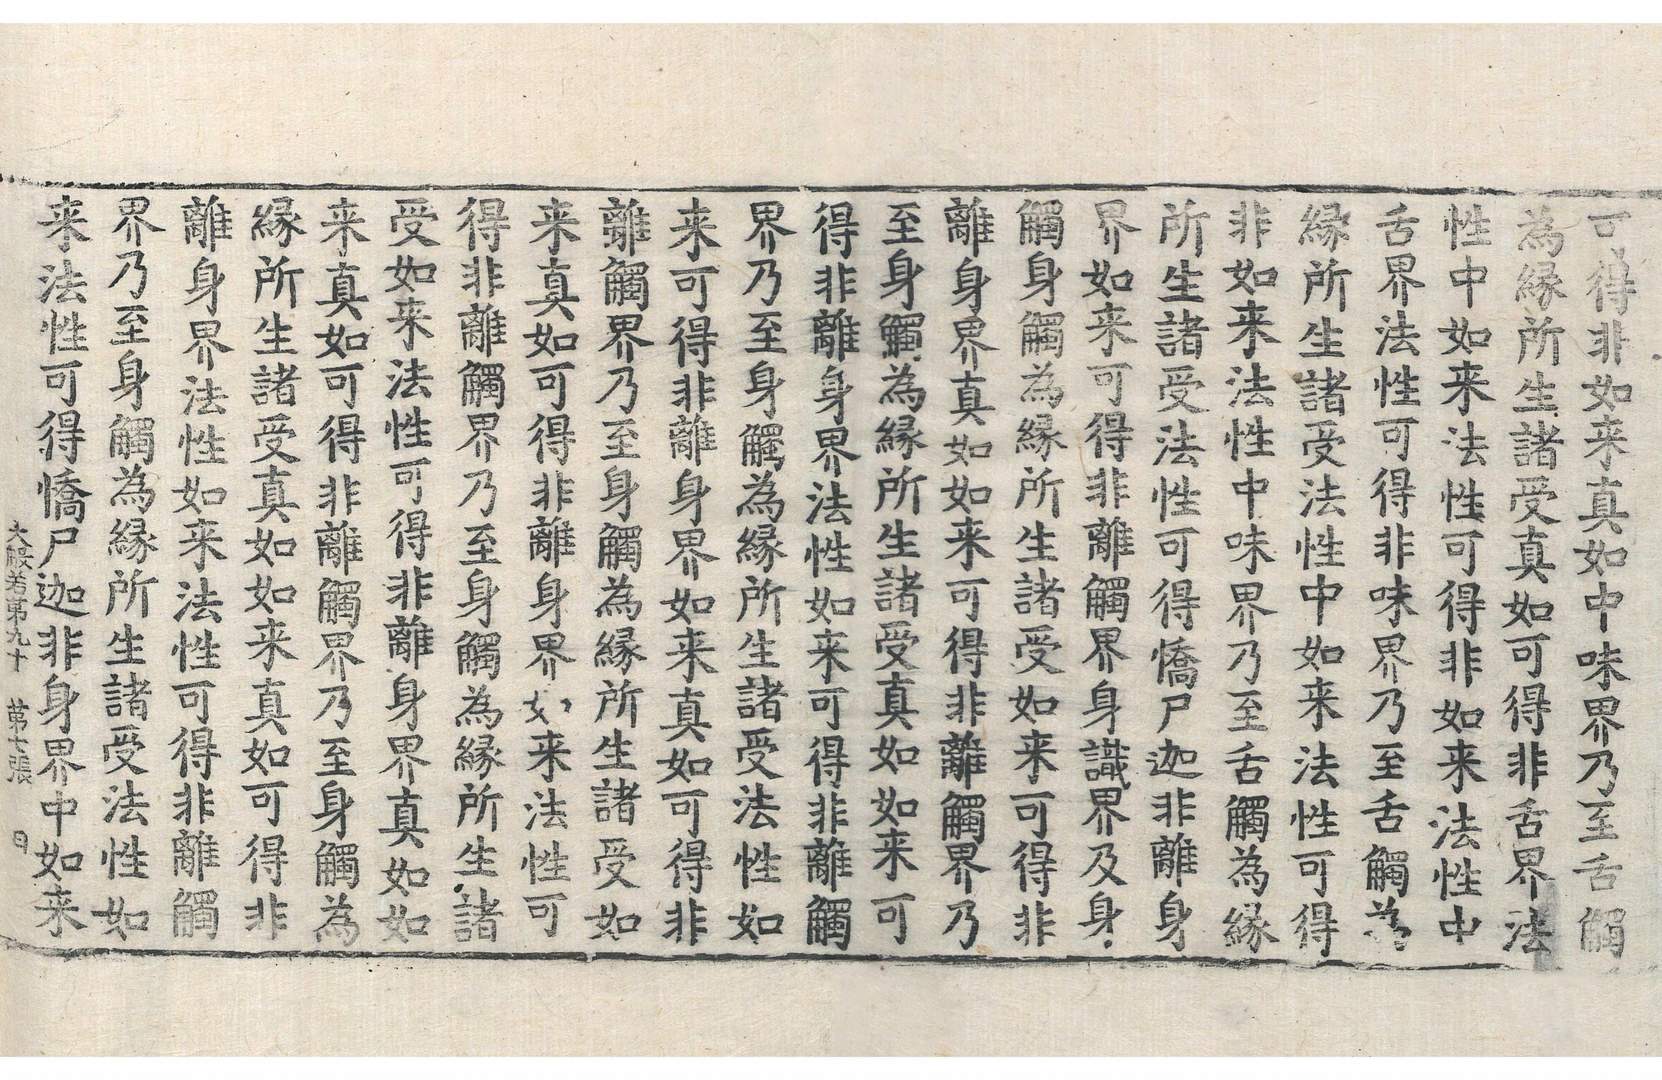 可得非如来真如中味界乃至舌觸
為縁所生諸受真如可得非舌界法
性中如来法性可得非如来法性中
舌界法性可得非味界乃至舌觸為
縁所生諸受法性中如来法性可得
非如来法性中味界乃至舌觸為縁
所生諸受法性可得憍尸迦非離身
界如来可得非離觸界身識界及身
觸身觸為縁所生諸受如来可得非
離身界真如如来可得非離觸界乃
至身觸為縁所生諸受真如如来可
得非離身界法性如来可得非離觸
界乃至身觸為縁所生諸受法性如
来可得非離身界如来真如可得非
離觸界乃至身觸為縁所生諸受如
来真如可得非離身界如来法性可
得非離觸界乃至身觸為縁所生諸
受如来法性可得非離身界真如如
来真如可得非離觸界乃至身觸為
縁所生諸受真如如来真如可得非
離身界法性如来法性可得非離觸
界乃至身觸為縁所生諸受法性如
来法性可得憍尸迦非身界中如来
大般若第九十 第七張 日